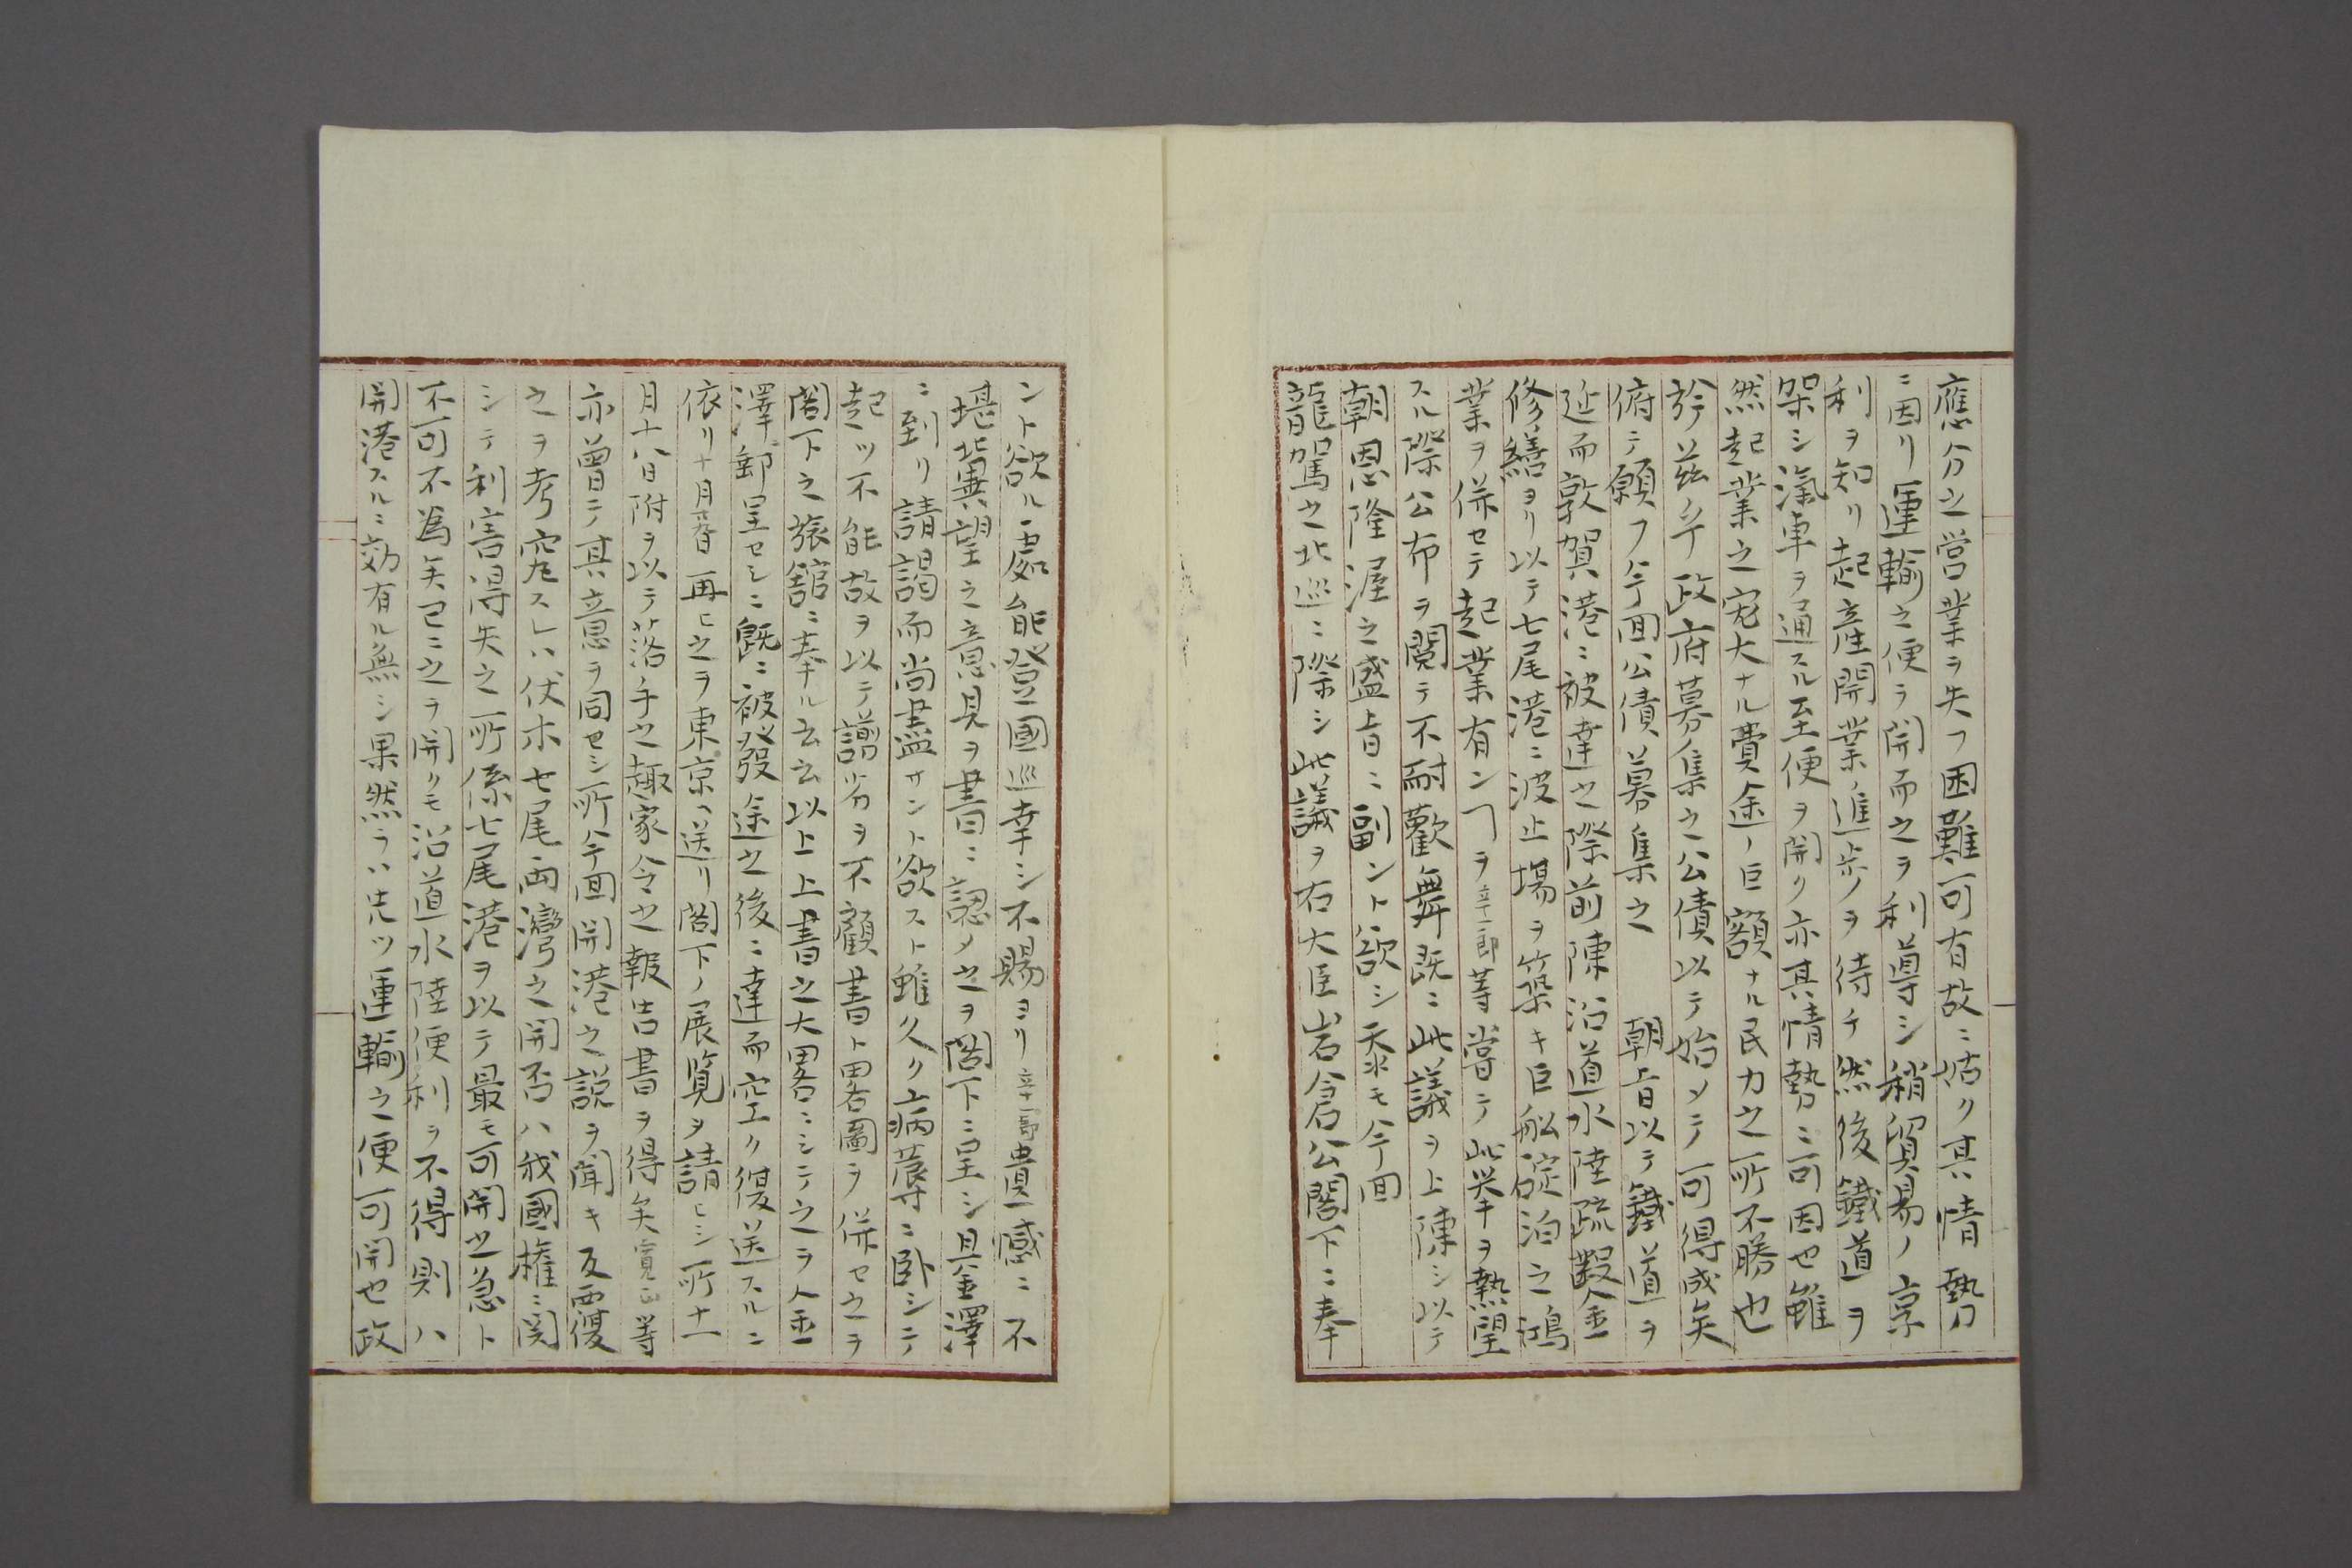 應分之営業ヲ失フ困難可有故ニ姑ク其情勢
ニ因リ運輸之便ヲ開而之ヲ利導シ稍貿易ノ京
利ヲ知リ起産開業ノ進歩ヲ待テ然後鐵道ヲ
架シ滊車ヲ通スル至便ヲ開ク亦其情勢ニ可因也雖
然起業之宏大ナル費途ノ巨額ナル民力之所不勝也
於茲乎政府募集之公債以テ始メテ可得成矣
俯テ願フ今回公債募集之 朝旨以テ鐵道ヲ
近而敦賀港ニ被達之際前陳沿道水陸疏鑿金
修繕ヨリ以テ七尾港ニ波止場ヲ築キ巨船碇泊之鴻
業ヲ併セテ起業有ンヿヲ辛十郎等嘗テ此挙ヲ熱望
スル際公布ヲ閲テ不耐歡舞既ニ此議ヲ上陳シ以テ
朝恩隆渥之盛旨ニ副ント欲シ夭求モ今回
龍駕之北巡ニ際シ此議ヲ右大臣岩倉公閣下ニ奉
ント欲ル處能登國巡幸シ不賜ヨリ辛十郎遺憾ニ不
堪北冀望之意見ヲ書ニ認メ之ヲ閣下ニ呈シ具金澤
ニ到リ請謁而尚盡サント欲スト雖久ク病蓐ニ臥シテ
起ツ不能故ヲ以テ譾劣ヲ不顧書ト畧圖ヲ併セ之ヲ
閣下之旅舘ニ奉ル云云以上上書之大畧ニシテ之ヲ金
澤郵呈セシニ既ニ被發途之後ニ達而空ク復送スルニ
依リ十月 再ヒ之ヲ東京ヘ送リ閣下ノ展覧ヲ請ヒシ所十一
月十八日附ヲ以テ落手之趣家令之報告書ヲ得矣寛 等
亦曽テ其意ヲ同セシ所今回開港之説ヲ聞キ反覆
之ヲ考究スレハ伏木七尾両灣之開否ハ我國権ニ関
シテ利害得失之所係七尾港ヲ以テ最モ可開之急ト
不可不為矣已ニ之ヲ開クモ沿道水陸便利ヲ不得則ハ
開港スルニ効有ル無シ果然ラハ先ツ運輸之便可開也政